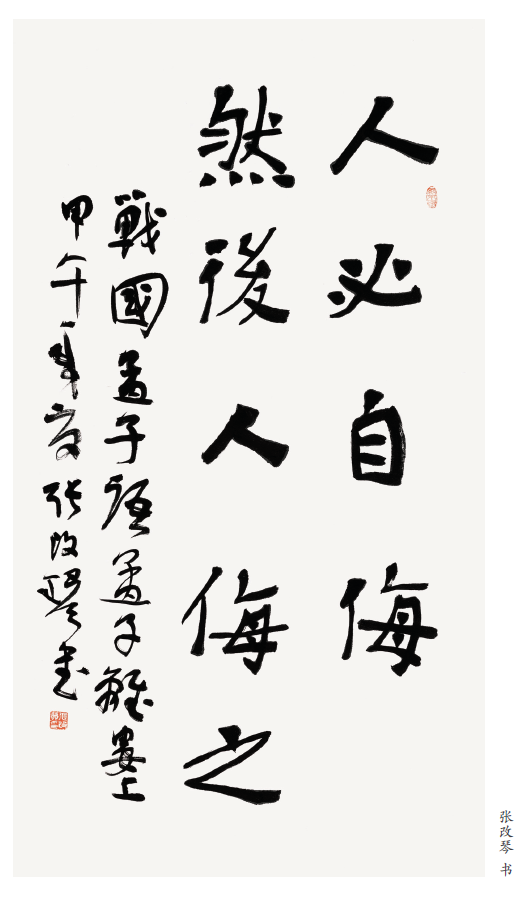 人必自侮
然後人侮之
戰國孟子語孟子離婁上
甲午年夏张改琴书
张改琴 书